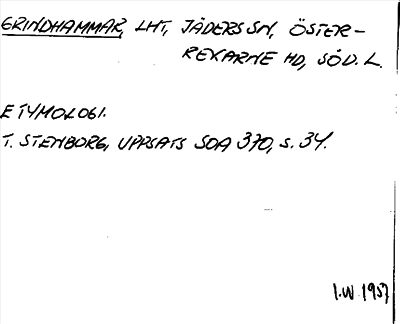 GRINDHAMMAR, LHT, JÄDERS SN, ÖSTER-
REKARNE HD, SÖD. L.
ETYMOLOGI.
T. STENBORG, UPPSATS SOA 370, S. 34.
I.W. 1957